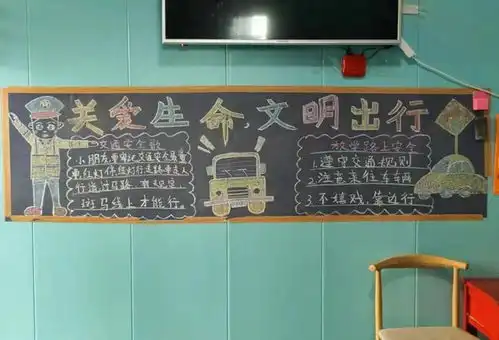 关爱生命,文明出行
交通安全歌
小朋友要牢记交通安全最重
要红灯停绿灯走路走人
行道过马路
斑马线上才能行。
放学路上安全
1.遵守交通规则
2.注意来往车辆
3.不嬉戏,靠边行